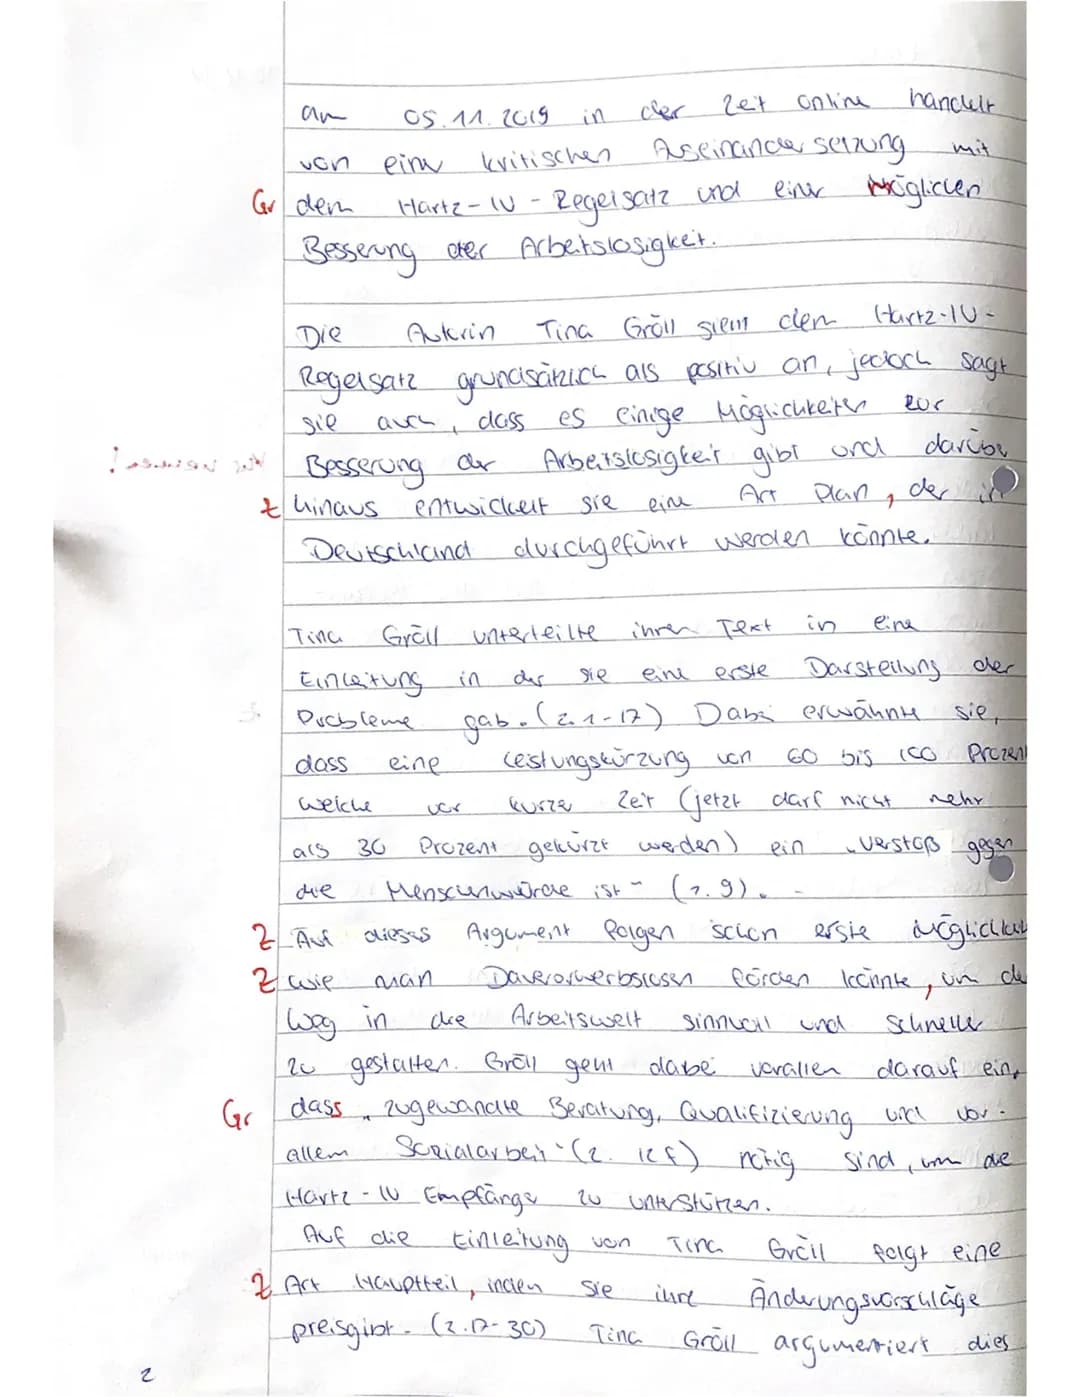 am 05.11.2019 in der Zeit online handelt
von einer kritischen Auseinandersetzung mit
Gr dem Hartz-IV-Regelsatz und einer möglichen
Besserung der Arbeitslosigkeit.
Die Autorin Tina Gröll sieht den Hartz-IV-
Regelsatz grundsätzlich als positiv an, jedoch sagt
sie auch, dass es einige Möglichkeiten zur
Besserung der Arbeitslosigkeit gibt und darüber
z hinaus entwickelt sie eine Art Plan, der in
Deutschland durchgeführt werden könnte.
Tina Gröll unterteilte ihren Text in eine
Einleitung in der sie eine erste Darstellung der
Probleme gab. (Z. 1-17) Dabei erwähnte sie,
dass eine Leistungskürzung von 60 bis 100 Prozent
welche vor kurze Zeit (jetzt darf nicht mehr
als 30 Prozent gekürzt werden) ein "Verstoß gegen
die Menschenwürde ist" (Z. 9).
Z Auf dieses Argument folgen schon erste Möglichkeit
Z wie man Dauererwerbslosen fördern könnte, um de
Weg in die Arbeitswelt sinnvoll und schneller
zu gestalten. Gröll geht dabei vorallem darauf ein,
Gr dass "zugewandte Beratung, Qualifizierung und vor
allem Sozialarbeit" (Z. 12f) nötig sind, um die
Hartz-IV Empfänger zu unterstützen.
Auf die Einleitung von Tina Gröll folgt eine
Z Art Hauptteil, indem sie ihre Änderungsvorschläge
preisgibt. (Z. 17-30) Tina Gröll argumentiert dies
2